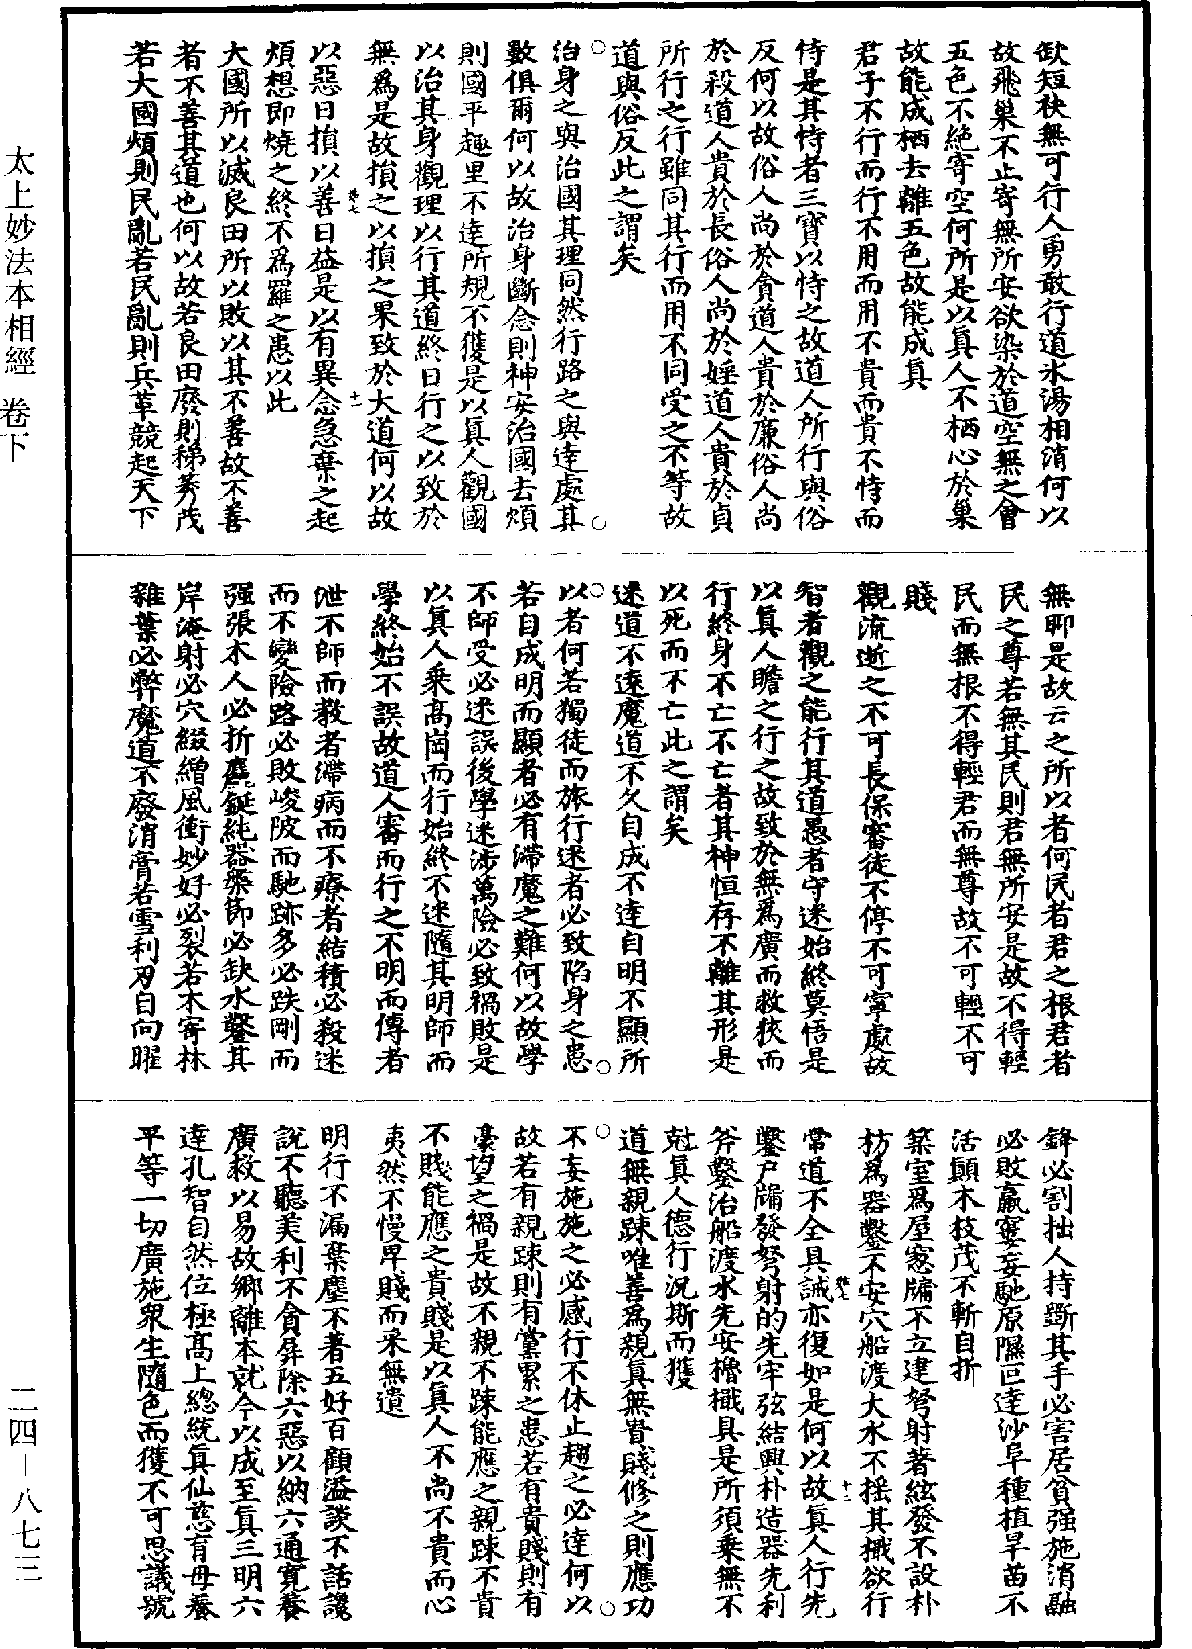 太上妙法本相經 卷下
二四—八七三
缺短袂無可行人勇敢行道氷湯相消何以
故飛巢不止寄無所安欲染於道空無之會
五色不絶寄空何所是以真人不栖心於巢
故能成栖去離五色故能成真
君子不行而行不用而用不貴而貴不恃而
恃是其恃者三寶以恃之故道人所行與俗
反何以故俗人尚於貪道人貴於廉俗人尚
於殺道人貴於長俗人尚於婬道人貴於貞
所行之行雖同其行而用不同受之不等故
道與俗反此之謂矣
治身之與治國其理同然行路之與達處其
數俱爾何以故治身斷念則神安治國去煩
則國平趣里不達所規不獲是以真人觀國
以治其身觀理以行其道終日行之以致於
無爲是故損之以損之果致於大道何以故
以惡日損以善日益是以有異念急棄之起
煩想即燒之終不爲羅之患以此
大國所以滅良田所以敗以其不善故不善
者不善其道也何以故若良田廢則稊莠茂
若大國煩則民亂若民亂則兵革競起天下
無聊是故云之所以者何民者君之根君者
民之尊若無其民則君無所安是故不得輕
民而無根不得輕君而無尊故不可輕不可
賤
觀流逝之不可長保審徒不停不可寧處故
智者觀之能行其道愚者守迷始終莫悟是
以真人瞻之行之故致於無爲廣而救狹而
行終身不亡不亡者其神恒存不離其形是
以死而不亡此之謂矣
迷道不遠魔道不久自成不達自明不顯所
以者何若獨徒而旅行迷者必致陷身之患
若自成明而顯者必有滯魔之難何以故學
不師受必迷誤後學迷涉萬險必致禍敗是
以真人乘高崗而行始終不迷隨其明師而
學終始不誤故道人審而行之不明而傳者
泄不師而教者滯病而不療者結積必殺迷
而不變險路必敗峻陂而馳跡多必跌剛而
强張木人必折麤鋋純器槃節必缺水鑿其
岸淹射必穴綴繒風衝妙好必裂若木寄林
雜葉必弊魔道不廢消膏若雪利刃自向曜
鋒必割拙人持斲其手必害居貧强施消融
必敗羸蹇妄馳原隰叵達沙阜種植旱苗不
活顛木枝茂不斬自折
築室爲屋窓牖不立建弩射著絃發不設朴
枋爲器鑿不安穴船渡大水不摇其檝欲行
常道不全具誡亦復如是何以故真人行先
鑿戸牖發弩射的先牢弦結興朴造器先利
斧鑿治船渡水先安櫓檝具是所須乗無不
尅真人德行況斯而獲
道無親踈唯善爲親真無貴賤修之則應功
不妄施施之必感行不休止趨之必達何以
故若有親踈則有黨累之患若有貴賤則有
豪望之禍是故不親不踈能應之親踈不貴
不賤能應之貴賤是以真人不尚不貴而心
夷然不慢卑賤而采無遺
明行不漏葉塵不著五好百顧溢談不話讒
說不聽美利不貪屏除六惡以納六通寬養
廣救以易故鄉離本就今以成至真三明六
達孔智自然位極高上總統真仙慈有母養
平等一切廣施衆生隨色而獲不可思議號